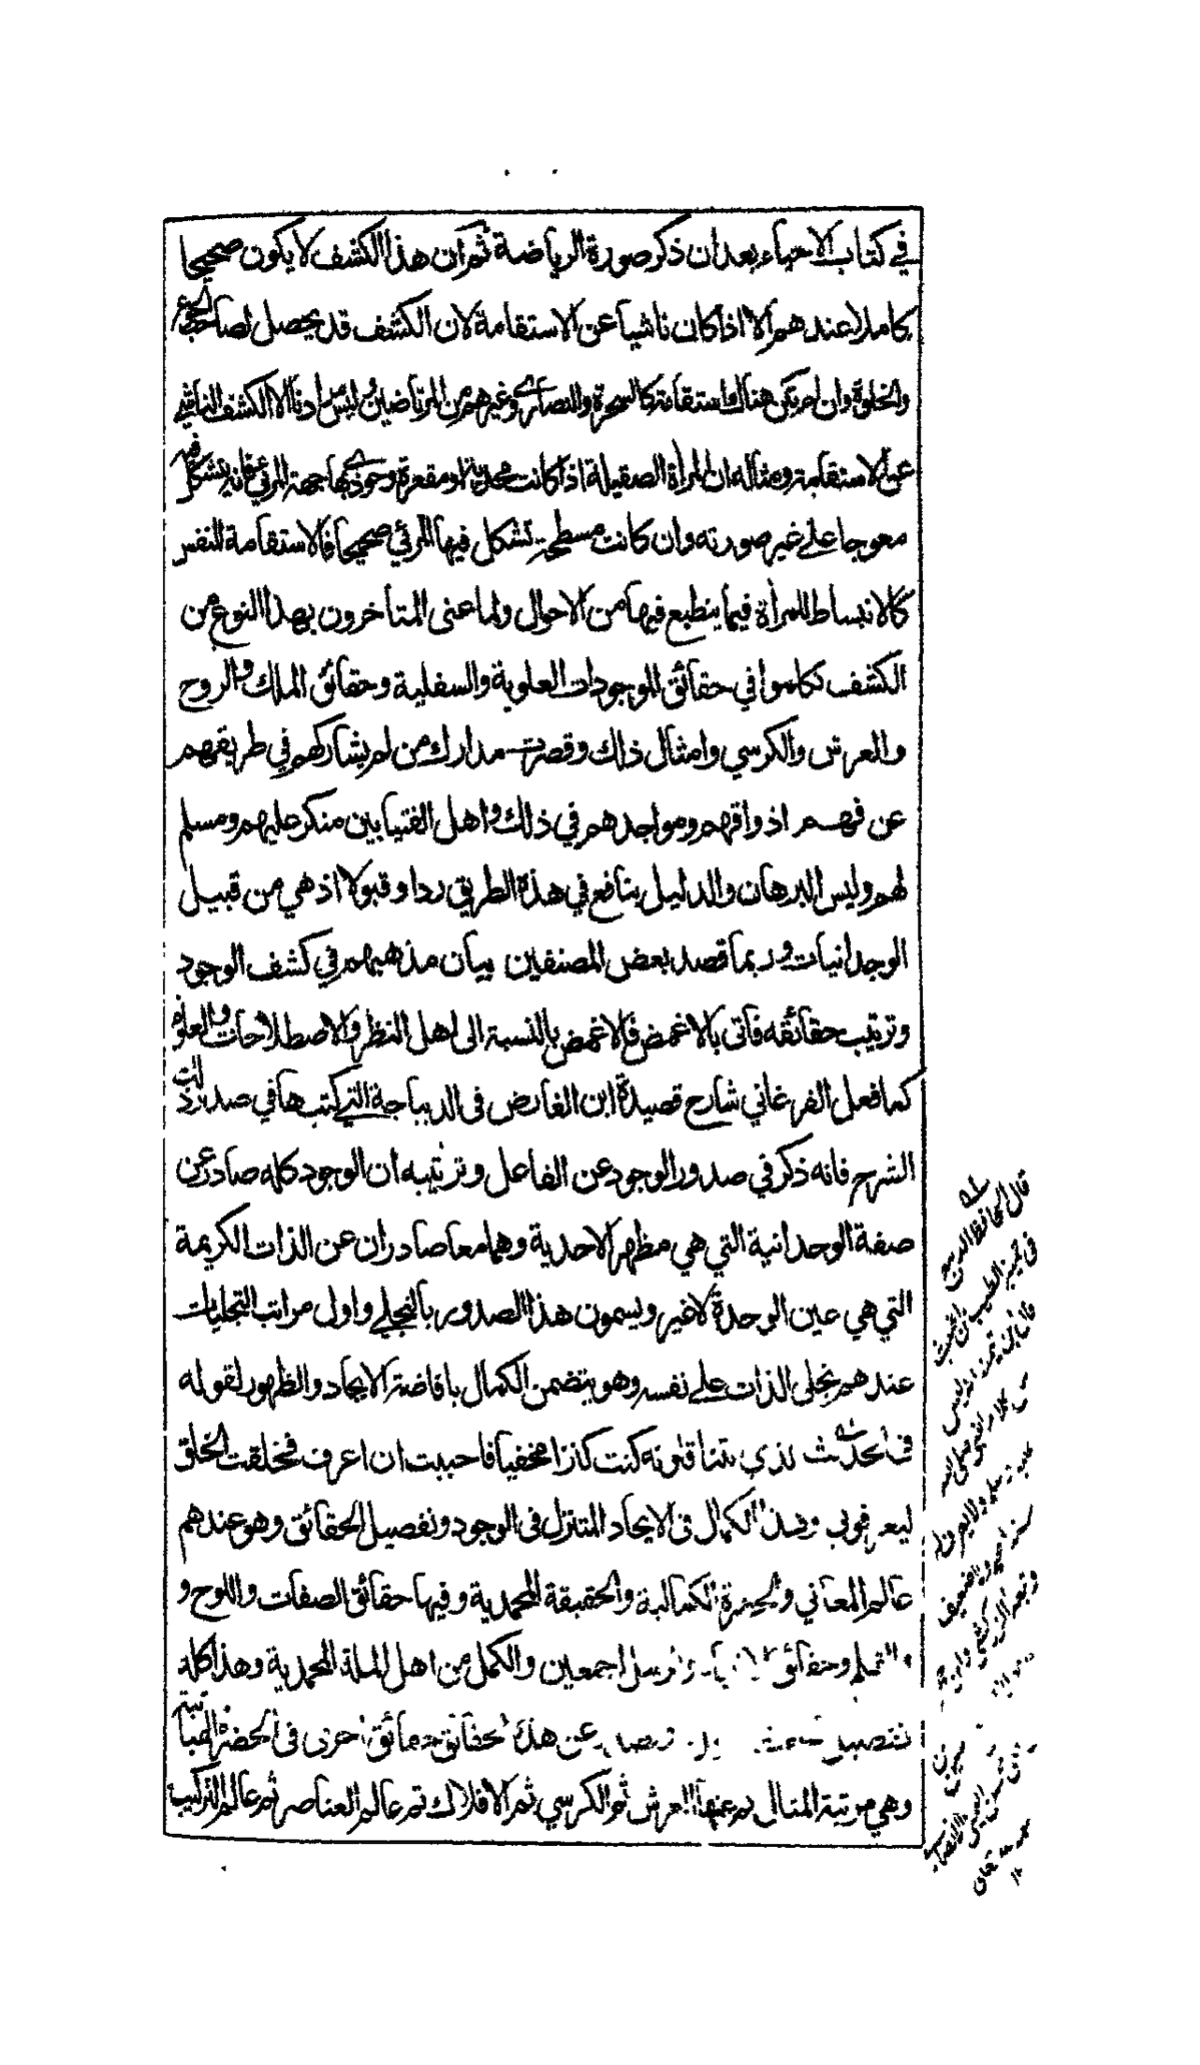 في كتاب الاحياء بعد ان ذكر صورة الرياضة ثم ان هذا الكشف لا يكون صحيحا
كاملا عندهم الا اذا كان ناشيا عن الاستقامة لان الكشف قد يحصل لصاحب الجوع
والخلوة وان لم تكن هناك استقامة كالسحرة والنصارى وغيرهم من المرتاضين وليس مرادنا الا الكشف الناشي
عن الاستقامة ومثاله ان المرأة الصقيلة اذا كانت محدبة او مقعرة وحوذي بها جهة المرئي فانه يتشكل فيه
معوجا على غير صورته وان كانت مسطحة تشكل فيها المرئي صحيحا فالاستقامة للنفس
كالانبساط للمرأة فيما ينطبع فيها من الاحوال ولما عنى المتأخرون بهذا النوع من
الكشف تكلموا في حقائق الموجودات العلوية والسفلية وحقائق الملك والروح
والعرش والكرسي وامثال ذلك وقصرت مدارك من لم يشاركهم في طريقهم
عن فهم اذواقهم ومواجدهم في ذلك واهل الفتيا بين منكر عليهم ومسلم
لهم وليس البرهان والدليل بنافع في هذه الطريق ردا وقبولا اذ هي من قبيل
الوجدانيات وربما قصد بعض المصنفين بيان مذهبهم في كشف الوجود
وترتيب حقائقه فأتى بالاغمض فالاغمض بالنسبة الى اهل النظر والاصطلاحات والعلوم
كما فعل الفرغاني شارح قصيدة ابن الفارض في الديباجة التي كتبها في صدر ذلك
الشرح فانه ذكر في صدور الوجود عن الفاعل وترتيبه ان الوجود كله صادر عن
صفة الوحدانية التي هي مظهر الاحدية وهما معا صادران عن الذات الكريمة
التي هي عين الوحدة لا غير ويسمون هذا الصدور بالتجلي واول مراتب التجليات
عندهم تجلي الذات على نفسه وهو يتضمن الكمال بافاضة الايجاد والظهور لقوله
في الحديث الذي يتناقلونه كنت كنزا مخفيا فاحببت ان اعرف فخلقت الخلق
ليعرفوني وهذا الكمال في الايجاد المتنزل في الوجود وتفصيل الحقائق وهو عندهم
عالم المعاني والحضرة الكمالية والحقيقة المحمدية وفيها حقائق الصفات واللوح و
القلم وحقائق الانبياء والرسل اجمعين والكمل من اهل الملة المحمدية وهذا كله
تفصيل عن هذه الحقائق حقائق اخرى في الحضرة الهبائية
وهي مرتبة المثال ثم عنها العرش ثم الكرسي ثم الافلاك ثم عالم العناصر ثم عالم التركيب
قال الحافظ